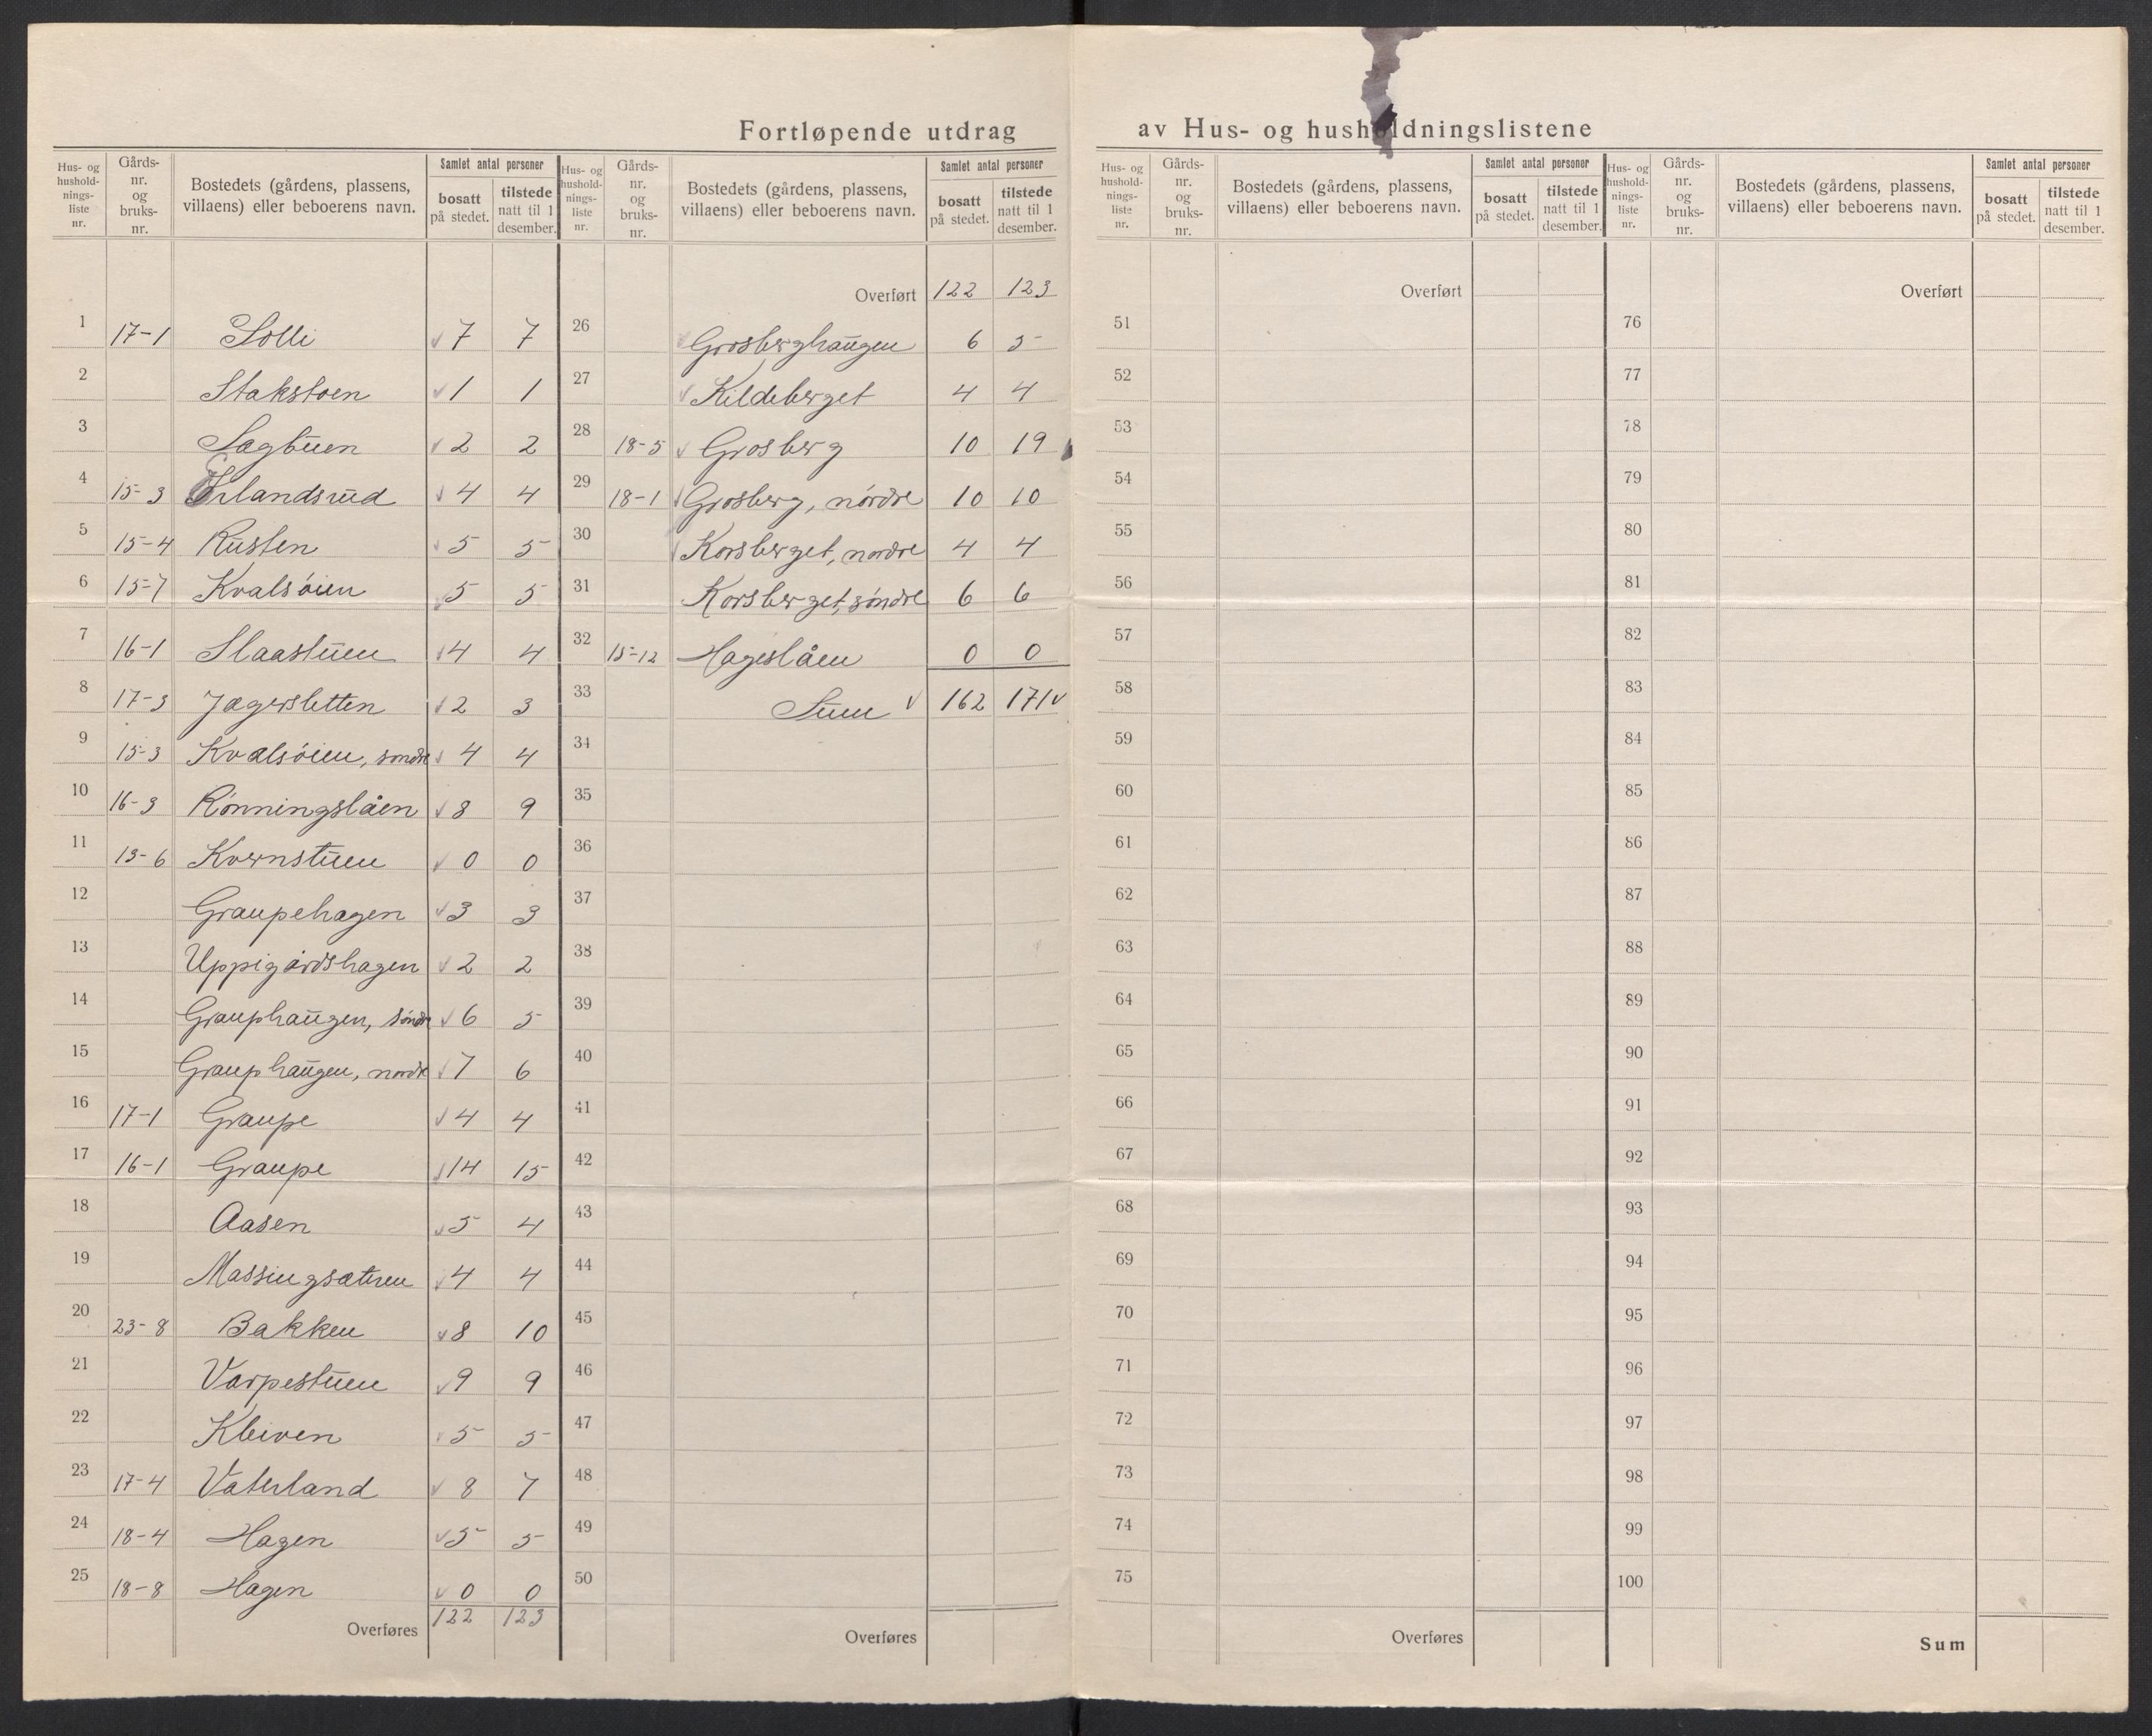 Fortløpende utdrag av Hus- og husholdningslistene
Hus- og hushold-nings-liste nr. | Gårds-nr. og bruks-nr. | Bostedets (gårdens, plassens, villaens) eller beboerens navn. | Samlet antal personer | bosatt på stedet. | tilstede natt til 1 desember.
1 17-1 Solli 7 7
2 Stakstoen 1 1
3 Sagbuen 2 2
4 15-3 Erlandsrud 4 4
5 15-4 Rusten 5 5
6 15-7 Kvalsöien 5 5
7 16-1 Slaastuen 4 4
8 17-3 Jægersletten 2 3
9 15-3 Kvalsöien, søndre 4 4
10 16-3 Rönningslåen 8 9
11 13-6 Kvernstuen 0 0
12 Graupehagen 3 3
13 Uppigårdshagen 2 2
14 Grauphaugen, söndre 6 5
15 Grauphaugen, nordre 7 6
16 17-1 Graupe 4 4
17 16-1 Graupe 14 15
18 Aasen 5 4
19 Massingsæteren 4 4
20 23-8 Bakken 8 10
21 Varpestuen 9 9
22 Kleiven 5 5
23 17-4 Vaterland 8 7
24 18-4 Hagen 5 5
25 18-8 Hagen 0 0
Overføres 122 123
Hus- og hushold-nings-liste nr. | Gårds-nr. og bruks-nr. | Bostedets (gårdens, plassens, villaens) eller beboerens navn. | Samlet antal personer | bosatt på stedet. | tilstede natt til 1 desember.
Overført 122 123
26 Grosberghaugen 6 5
27 Kildeberget 4 4
28 18-5 Grosberg 10 19
29 18-1 Grosberg, nórdre 10 10
30 Korsberget, nordre 4 4
31 Korsberget, söndre 6 6
32 15-12 Hageslåen 0 0
33 Sum 162 171
34
35
36
37
38
39
40
41
42
43
44
45
46
47
48
49
50
Overføres
Hus- og hushold-nings-liste nr. | Gårds-nr. og bruks-nr. | Bostedets (gårdens, plassens, villaens) eller beboerens navn. | Samlet antal personer | bosatt på stedet. | tilstede natt til 1 desember.
Overført
51
52
53
54
55
56
57
58
59
60
61
62
63
64
65
66
67
68
69
70
71
72
73
74
75
Overføres
Hus- og hushold-nings-liste nr. | Gårds-nr. og bruks-nr. | Bostedets (gårdens, plassens, villaens) eller beboerens navn. | Samlet antal personer | bosatt på stedet. | tilstede natt til 1 desember.
Overført
76
77
78
79
80
81
82
83
84
85
86
87
88
89
90
91
92
93
94
95
96
97
98
99
100
Sum